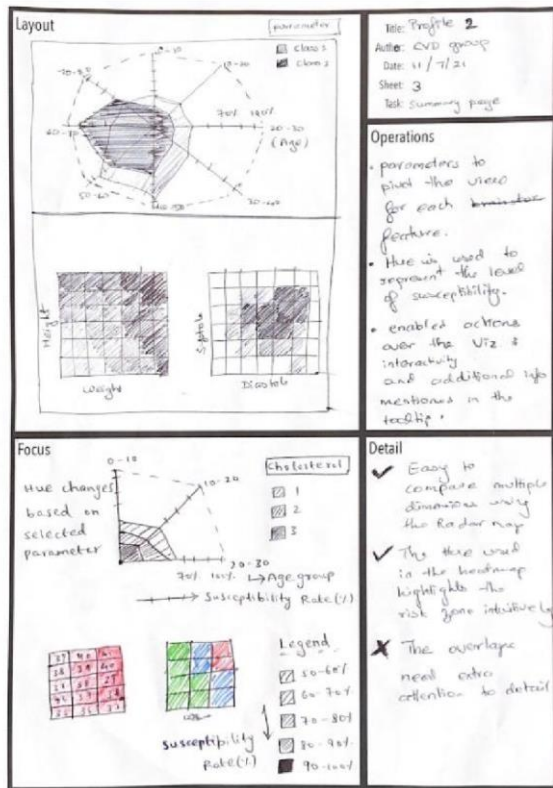 Layout
parameter
Class 1
Class 2
0-10
10-20
70-80
60-70
70% 100%
20-30
(Age)
50-60
30-40
Height
Weight
Systole
Diastole
Title: Profile 2
Author: CVD group
Date: 11/7/21
Sheet: 3
Task: Summary page
Operations
• parameters to
pivot the view
for each
feature.
• Hue is used to
represent the level
of susceptibility.
• enabled actions
over the Viz &
interactivity
and additional info
mentioned in the
tooltip.
Focus
0-10
Cholesterol
Hue changes
based on
selected
parameter
10-20
1
2
3
20-30
70% 100% ↳ Age group
→ Susceptibility Rate (%)
Legend
50-60%
60-70%
70-80%
80-90%
90-100%
susceptibility
Rate (%)
Detail
✓ Easy to
compare multiple
dimensions using
the Radar map
✓ The hue used
in the heatmap
highlights the
risk zone intuitively
✗ The overlaps
need extra
attention to detail